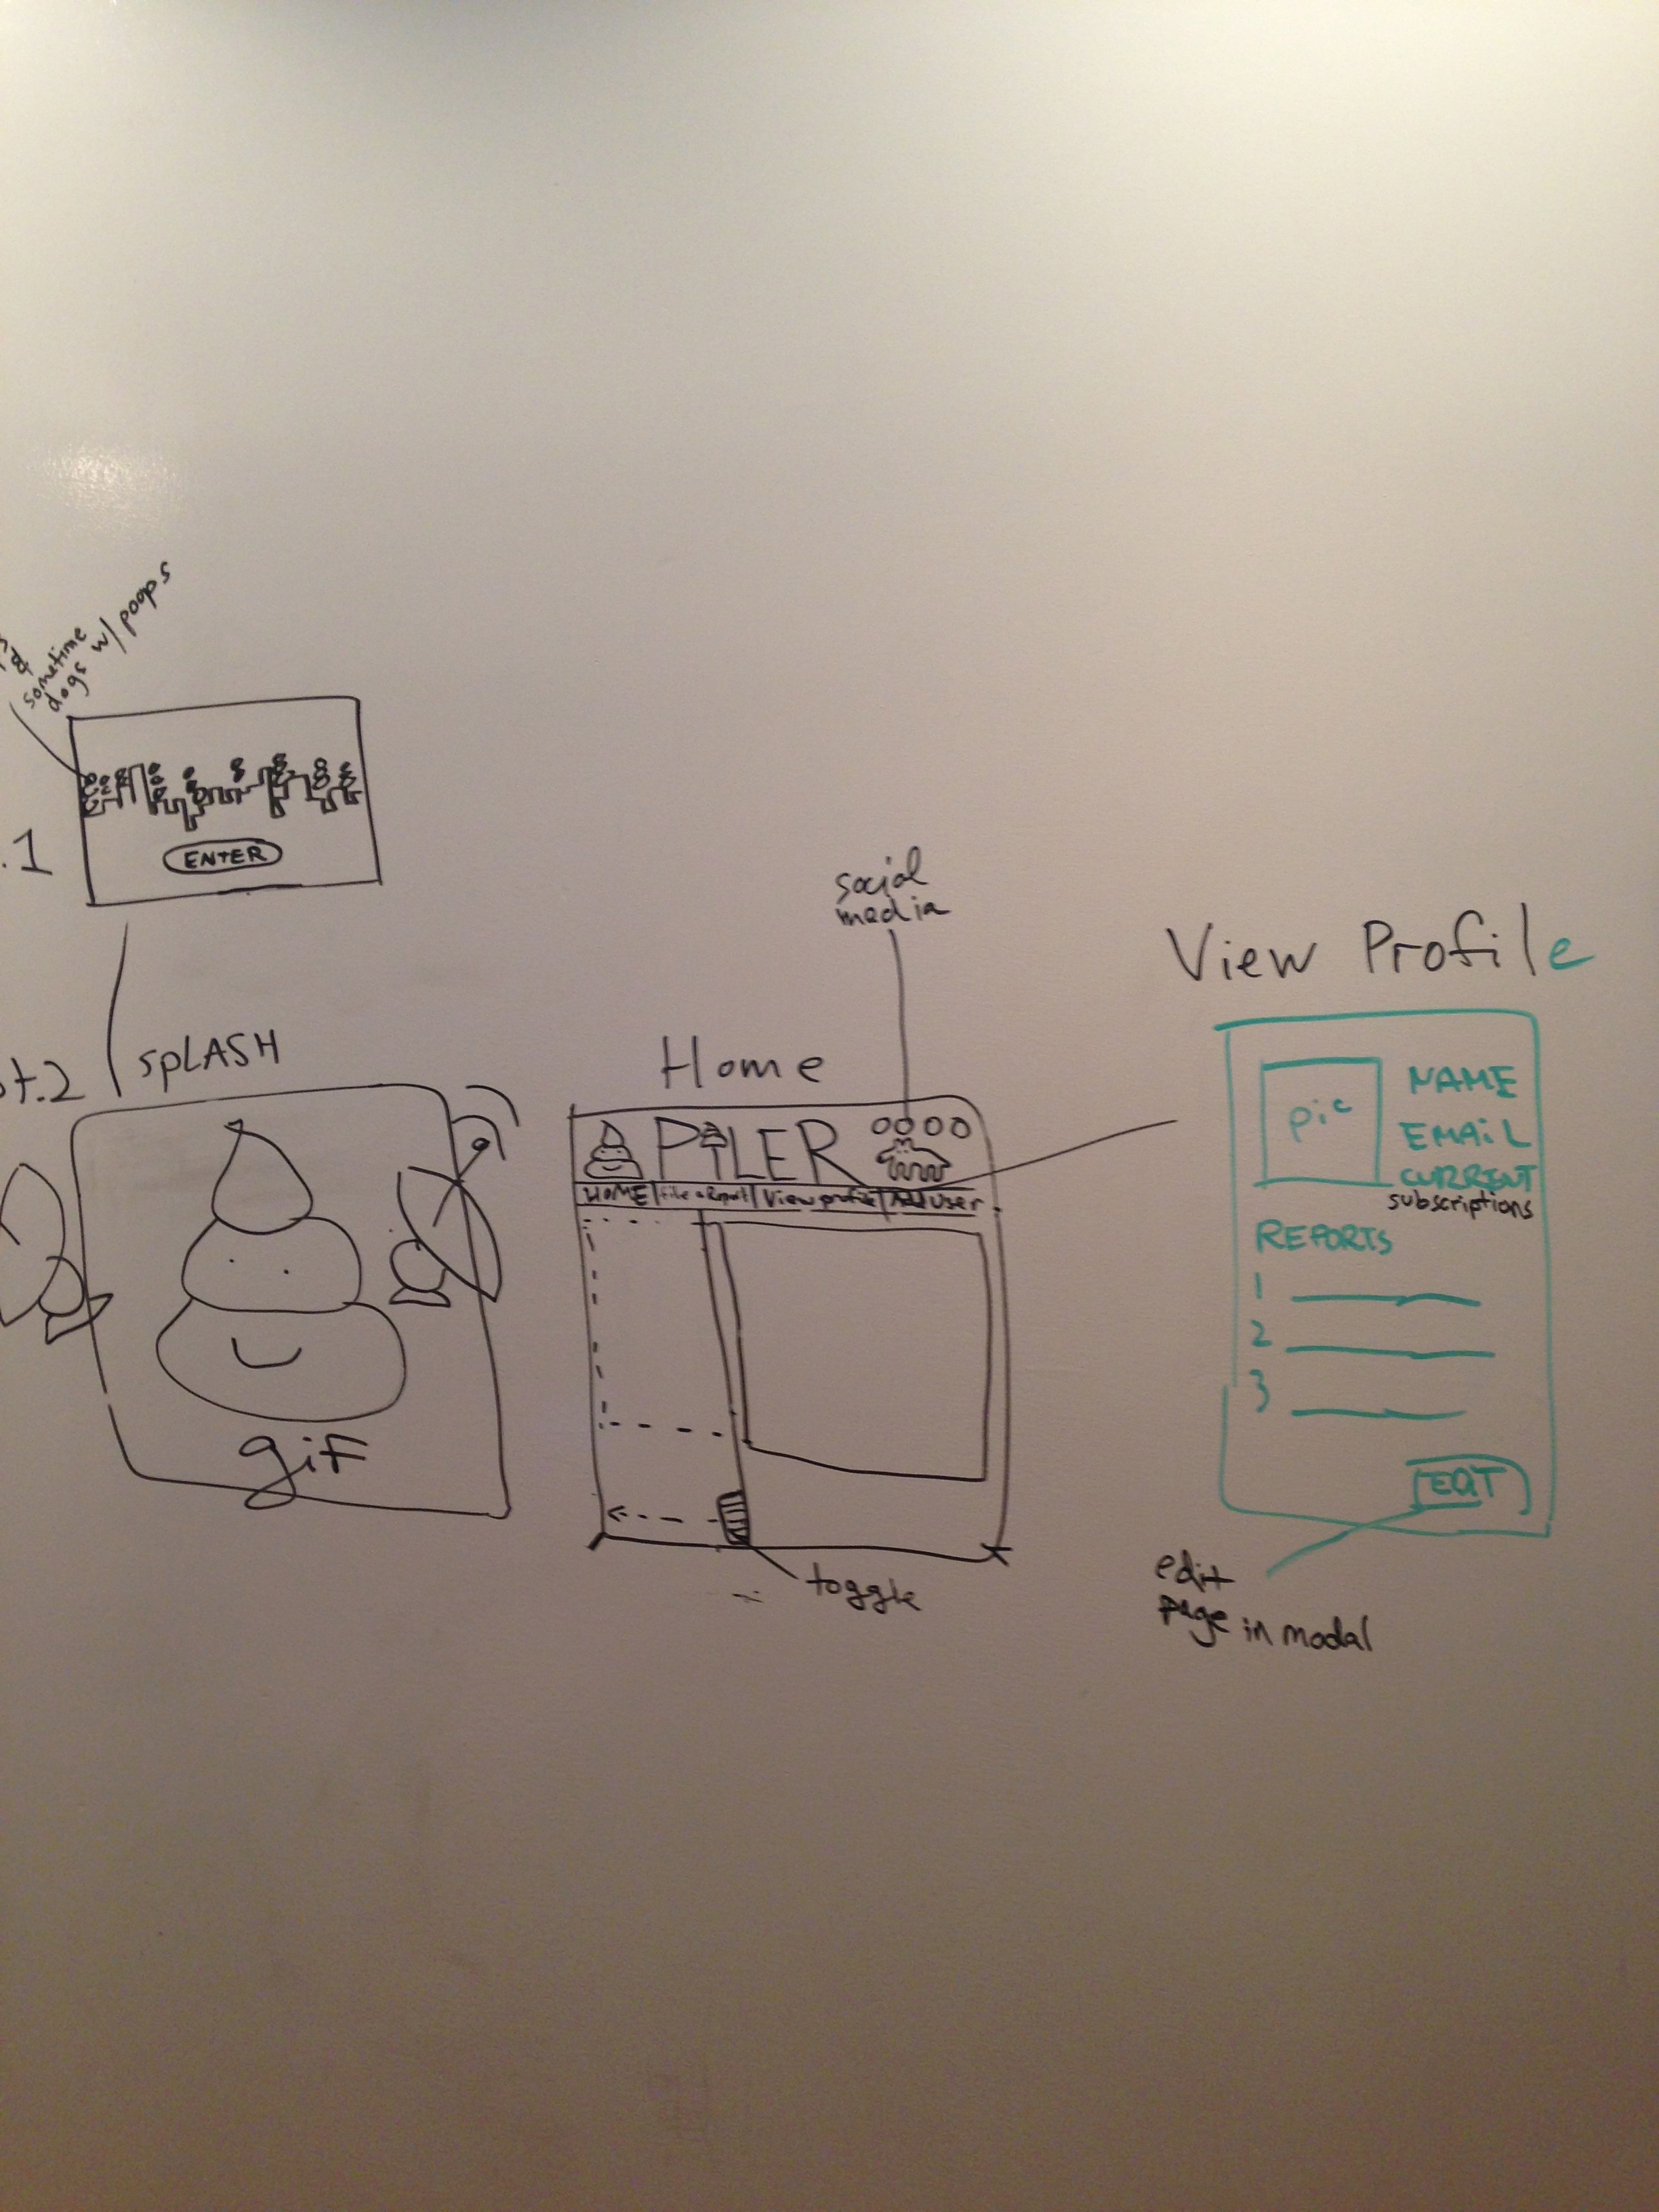 sometime
dogs w/ poops
ENTER
.1
t.2
SPLASH
gif
social
media
Home
PILER
HOME | File a Report | View profile | Add User
toggle
View Profile
pic
NAME
EMAIL
CURRENT
subscriptions
REPORTS
1
2
3
EDIT
edit
page in modal